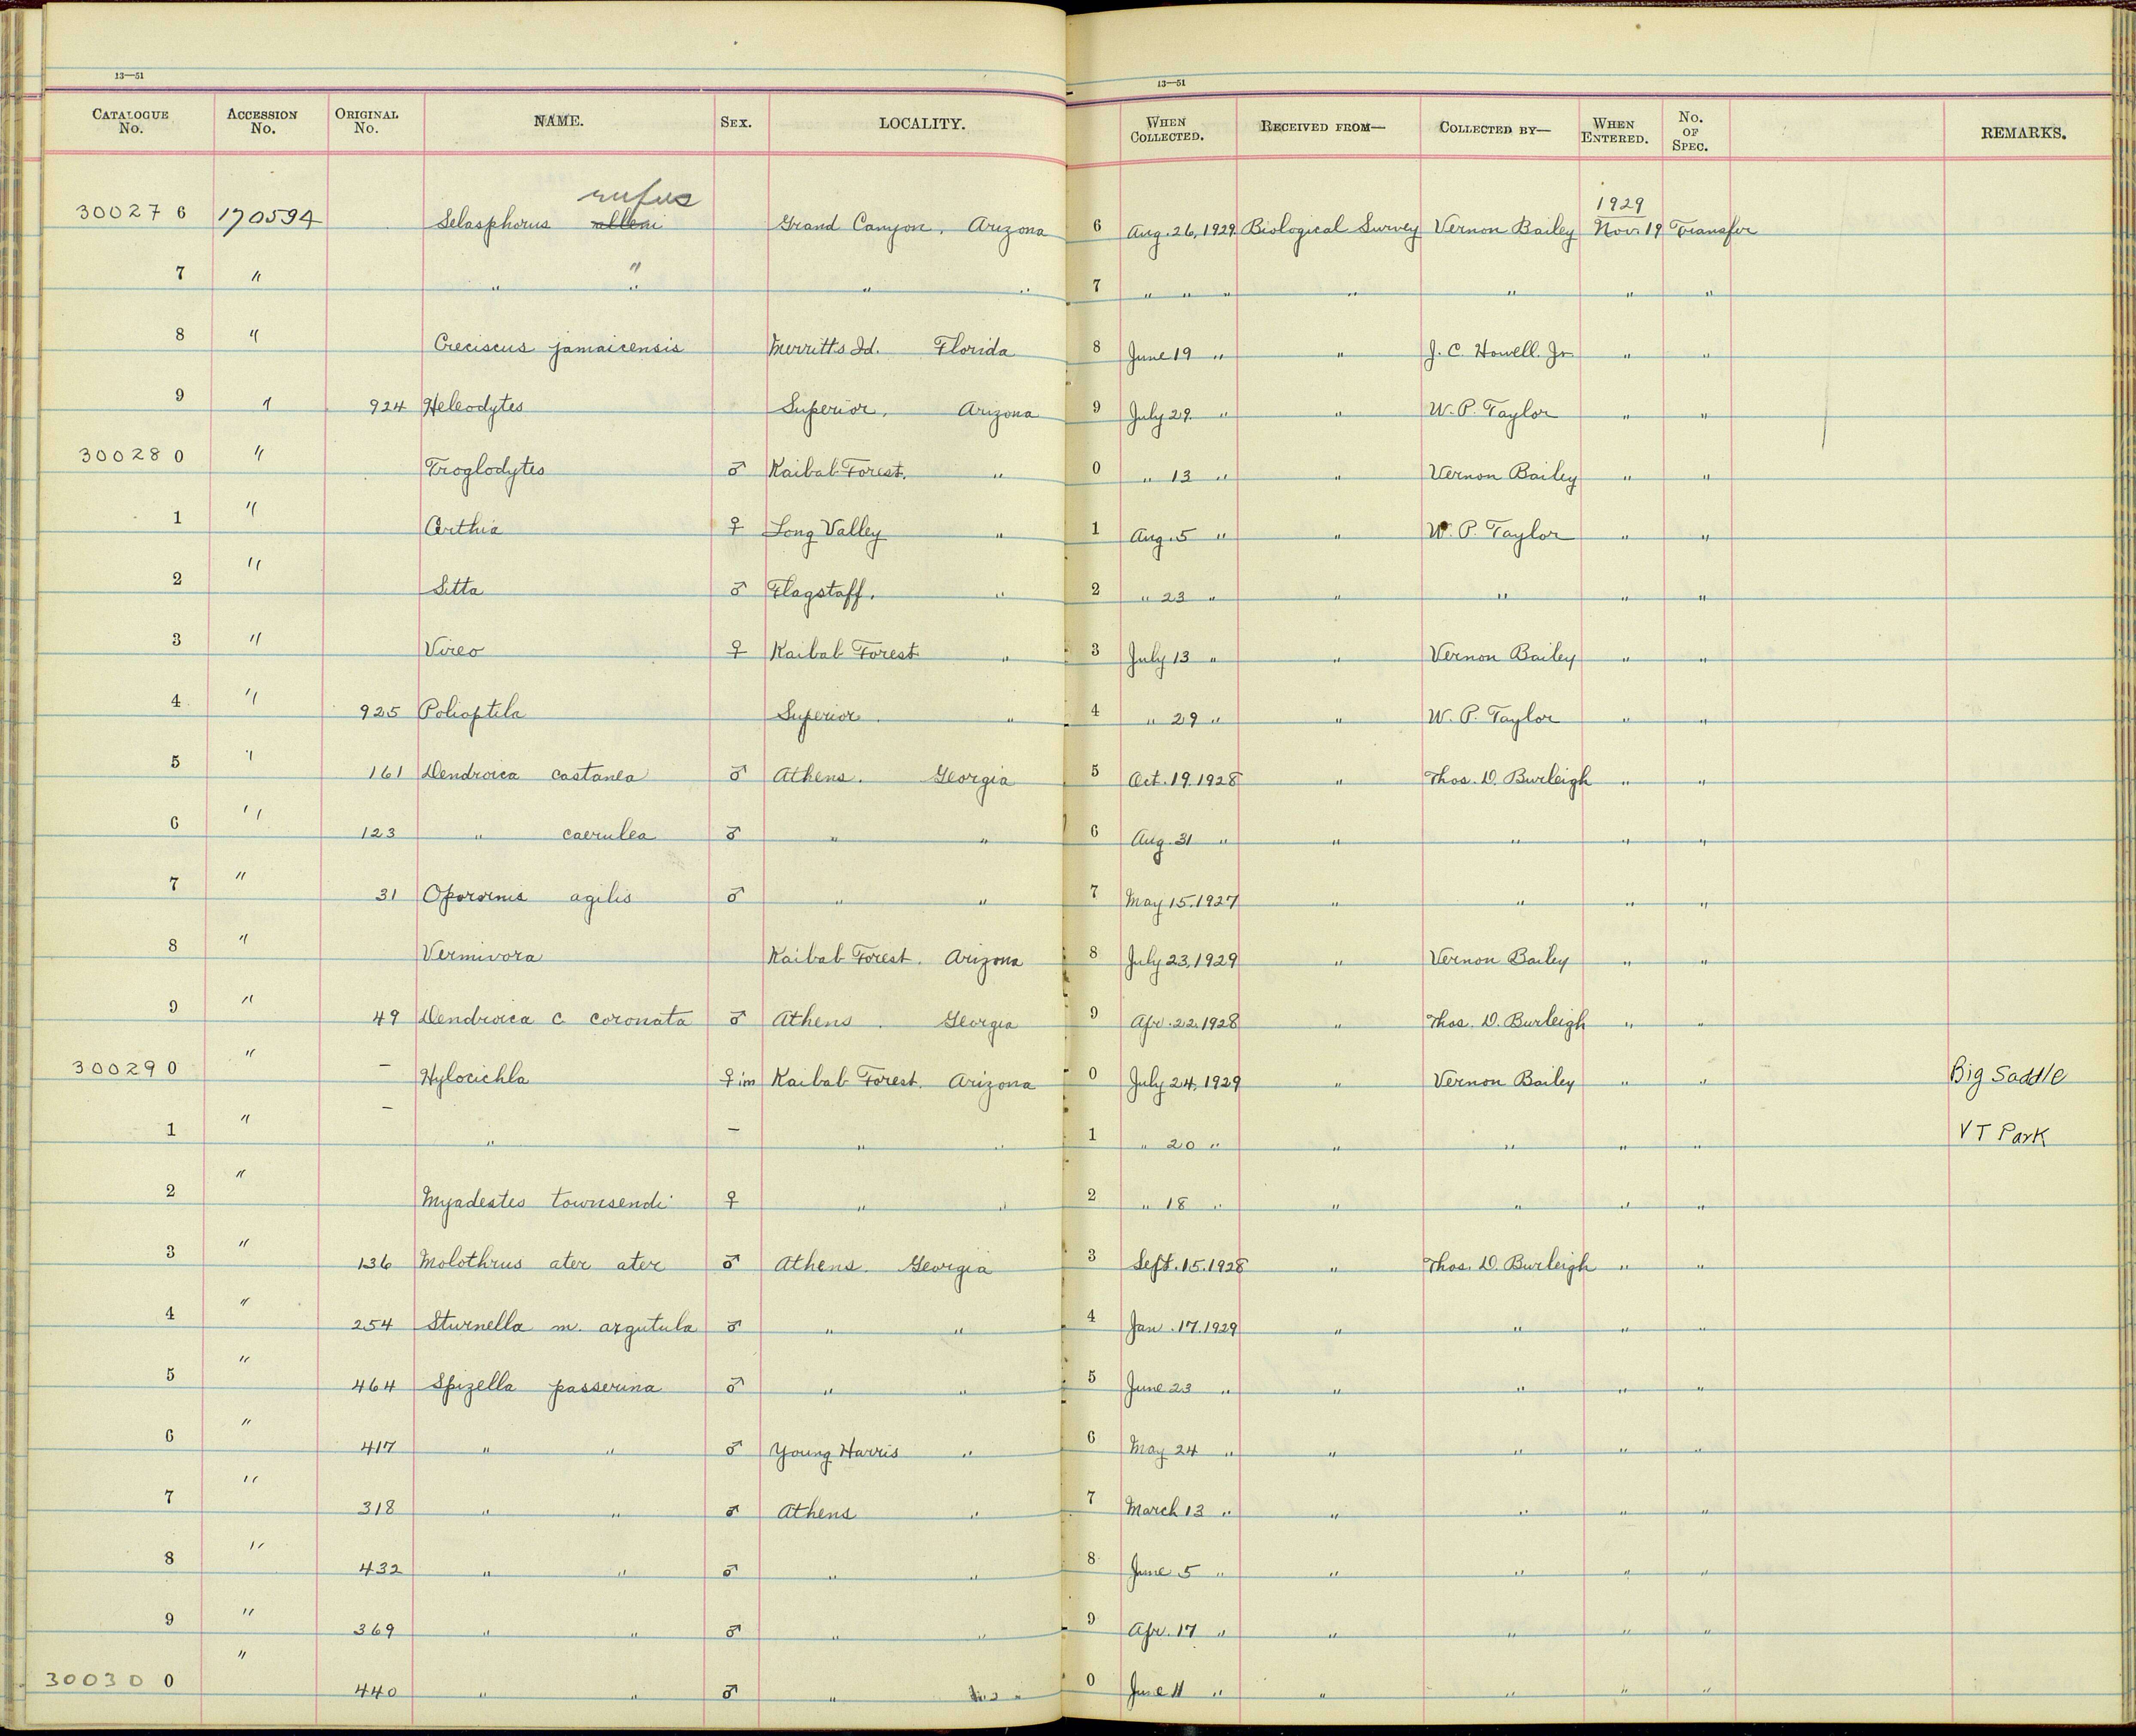 13—51
13—51
CATALOGUE No. ACCESSION No. ORIGINAL No. NAME. SEX. LOCALITY. WHEN COLLECTED. RECEIVED FROM— COLLECTED BY— WHEN ENTERED. No. OF SPEC. REMARKS.
rufus
1929
300276 170594 Selasphorus alleni Grand Canyon, Arizona 6 Aug. 26, 1929. Biological Survey Vernon Bailey Nov. 19 Transfer
7 " " " " " 7 " " " " " " "
8 " Creciscus jamaicensis Merritts Id. Florida 8 June 19 " " J. C. Howell. Jr " "
9 " 924 Heleodytes Superior, Arizona 9 July 29. " " W. P. Taylor " "
300280 " Troglodytes ♂ Kaibab Forest. " 0 " 13 " " Vernon Bailey " "
1 " Certhia ♀ Long Valley " 1 Aug. 5 " " W. P. Taylor " "
2 " Sitta ♂ Flagstaff. " 2 " 23 " " " " "
3 " Vireo ♀ Kaibab Forest " 3 July 13 " " Vernon Bailey " "
4 " 925 Polioptila Superior. " 4 " 29 " " W. P. Taylor " "
5 " 161 Dendroica castanea ♂ Athens. Georgia 5 Oct. 19. 1928 " Thos. D. Burleigh " "
6 " 123 " caerulea ♂ " " 6 Aug. 31 " " " " "
7 " 31 Oporornis agilis ♂ " " 7 May 15. 1927 " " " "
8 " Vermivora Kaibab Forest. Arizona 8 July 23, 1929 " Vernon Bailey " "
9 " 49 Dendroica c. coronata ♂ Athens. Georgia 9 Apr. 22. 1928 " Thos. D. Burleigh " "
300290 " – Hylocichla ♀ im Kaibab Forest. Arizona 0 July 24, 1929 " Vernon Bailey " " Big Saddle
1 " – " – " " 1 " 20 " " " " " VT Park
2 " Myadestes townsendi ♀ " " 2 " 18 " " " " "
3 " 136 Molothrus ater ater ♂ Athens. Georgia 3 Sept. 15. 1928 " Thos. D. Burleigh " "
4 " 254 Sturnella m. argutula ♂ " " 4 Jan. 17. 1929 " " " "
5 " 464 Spizella passerina ♂ " " 5 June 23 " " " " "
6 " 417 " " ♂ Young Harris " 6 May 24 " " " " "
7 " 318 " " ♂ Athens " 7 March 13 " " " " "
8 " 432 " " ♂ " " 8 June 5 " " " " "
9 " 369 " " ♂ " " 9 Apr. 17 " " " " "
300300 " 440 " " ♂ " " 0 June 11 " " " " "